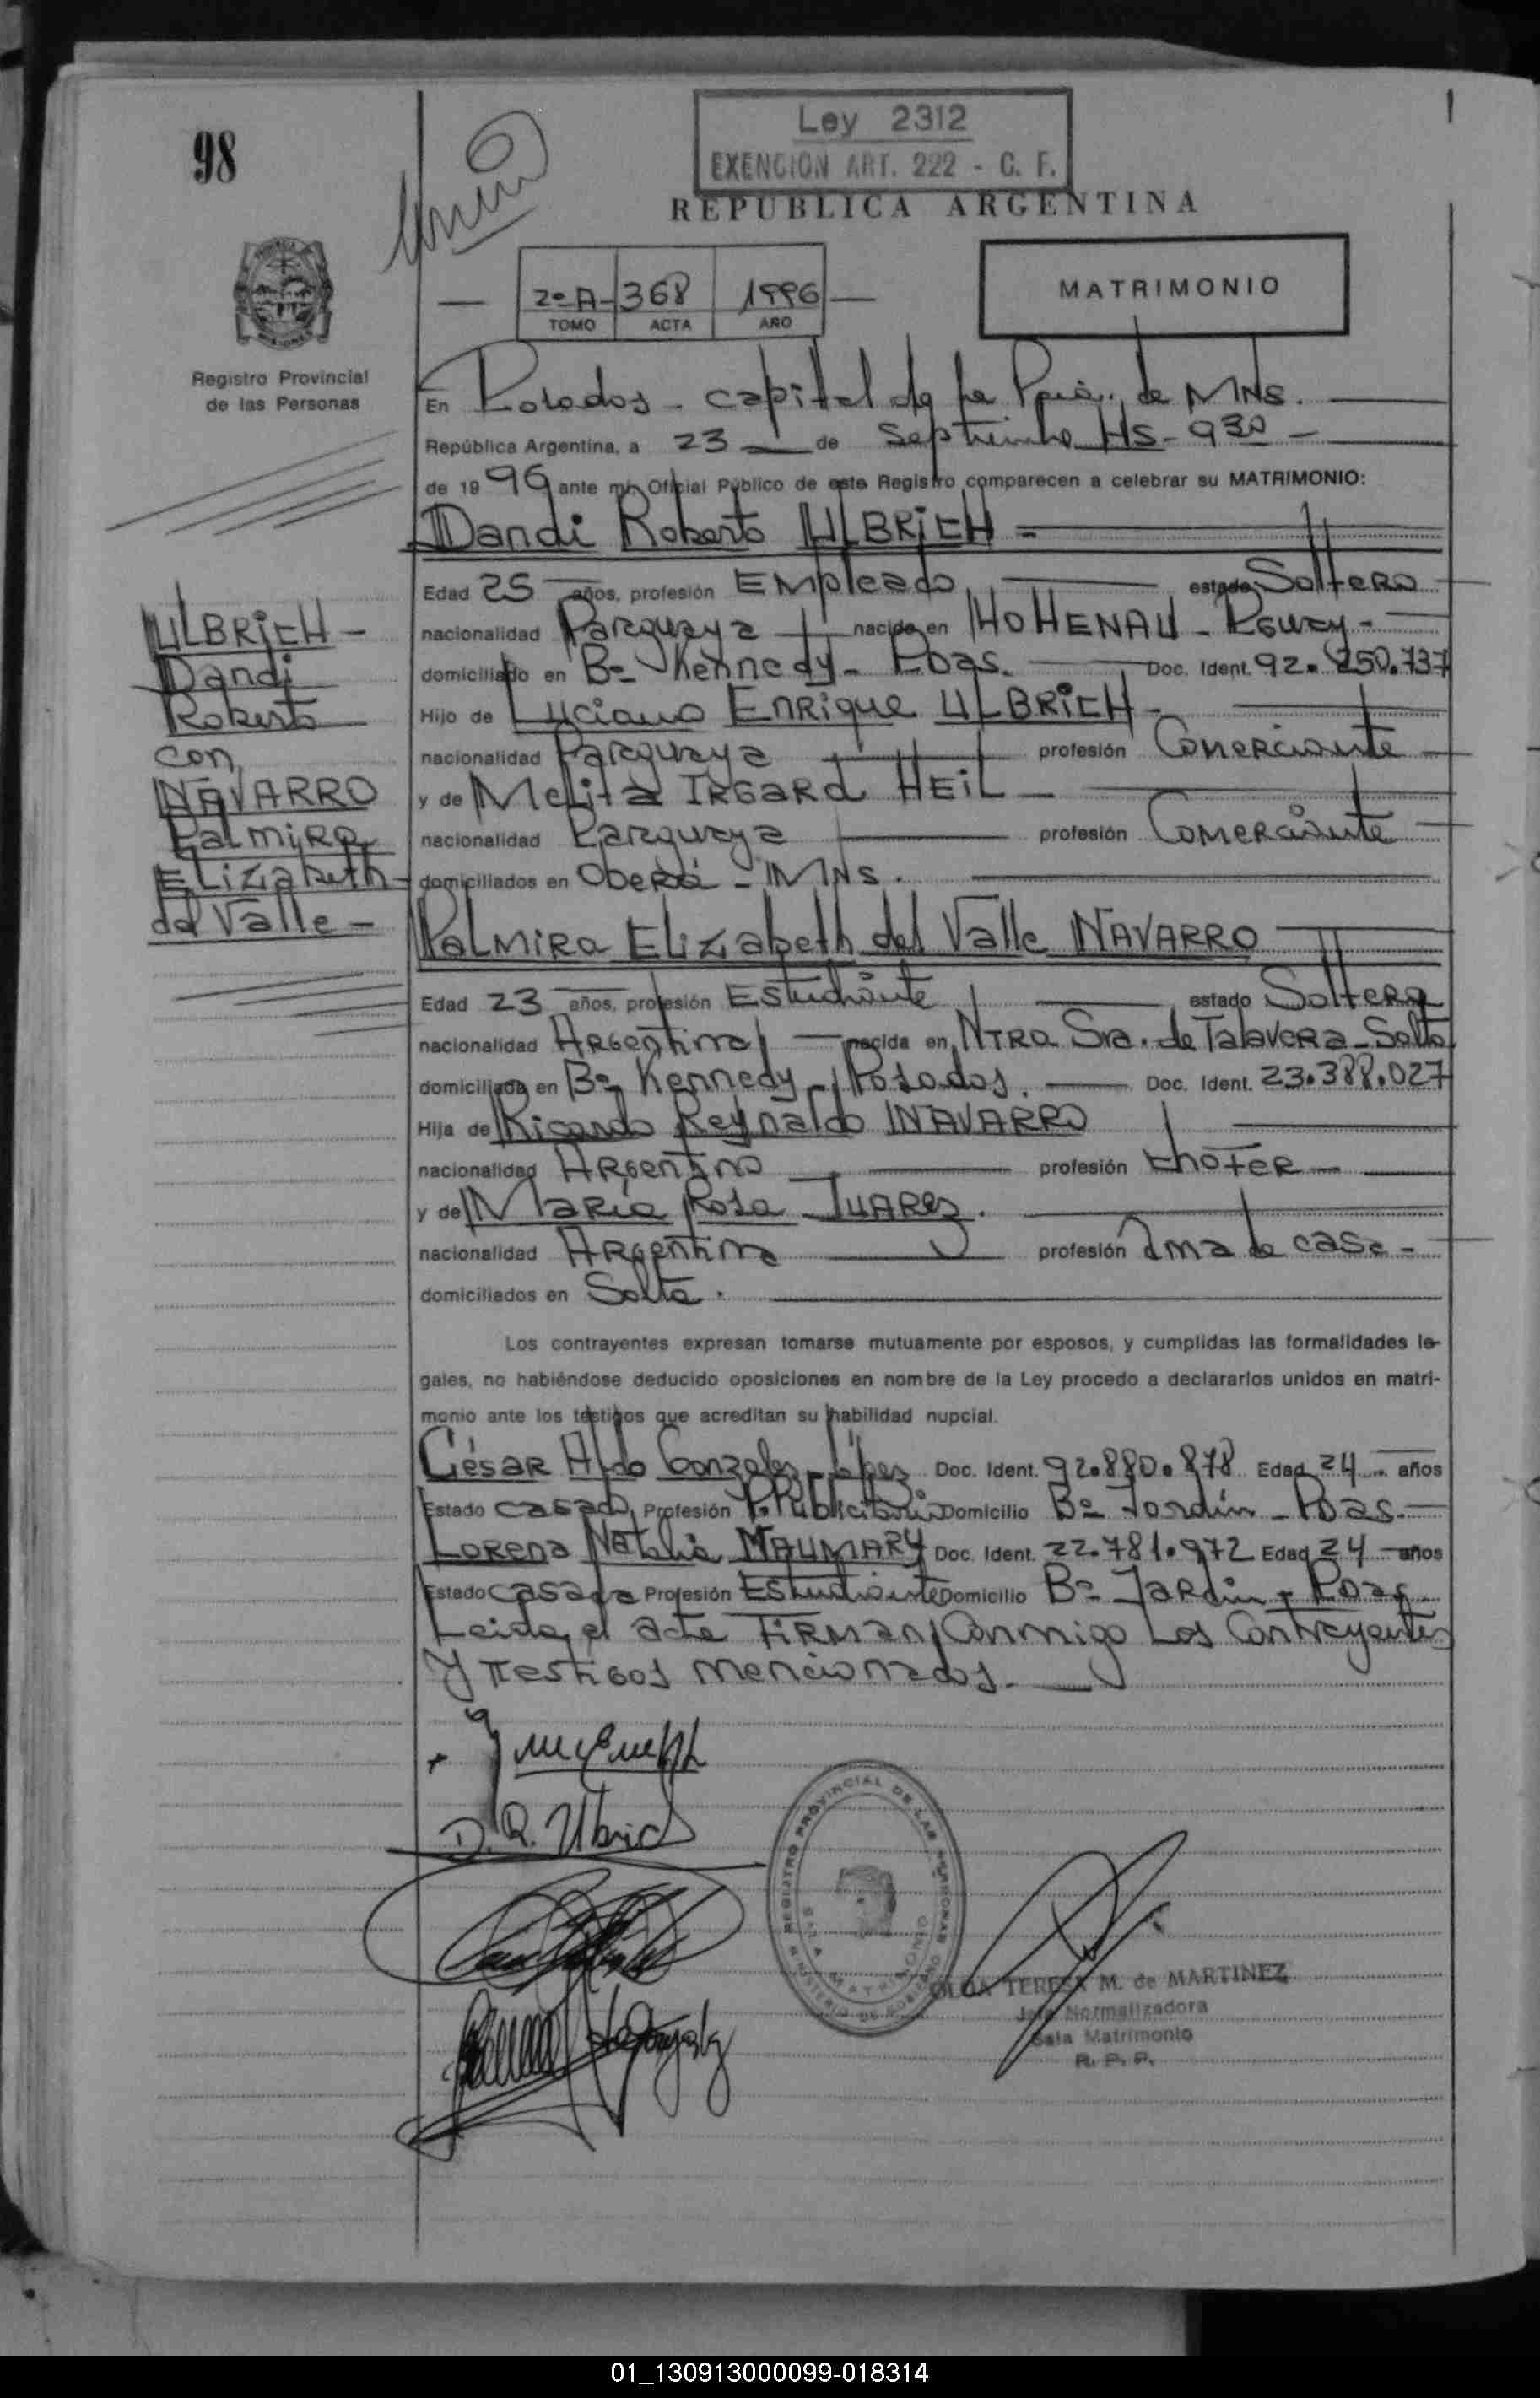 98
Ley 2312
EXENCION ART. 222 - C. F.
REPUBLICA ARGENTINA
2º A- 368 1996
TOMO ACTA AÑO
MATRIMONIO
Registro Provincial
de las Personas
En Posadas - capital de la Pcia. de MNs.
República Argentina, a 23 de Septiembre Hs - 930 -
de 1996 ante mí, Oficial Público de este Registro comparecen a celebrar su MATRIMONIO:
Dandi Roberto ULBRICH =
Edad 25 años, profesión Empleado estado Soltero
nacionalidad Paraguaya nacido en HOHENAU - Pguay -
domiciliado en Bº Kennedy - Pdas. Doc. Ident. 92.250.737
Hijo de Luciano Enrique ULBRICH -
nacionalidad Paraguaya profesión Comerciante
y de Melita Irgard HEIL -
nacionalidad Paraguaya profesión Comerciante
domiciliados en Oberá - MNs.
ULBRICH -
Dandi
Roberto
con
NAVARRO
Palmira
Elizabeth
del Valle -
Palmira Elizabeth del Valle NAVARRO
Edad 23 años, profesión Estudiante estado Soltera
nacionalidad Argentina nacida en Ntra Sra. de Talavera - Salta
domiciliada en Bº Kennedy - Posadas. Doc. Ident. 23.388.027
Hija de Ricardo Reynaldo NAVARRO
nacionalidad Argentino profesión Chofer -
y de María Rosa JUAREZ.
nacionalidad Argentina profesión Ama de casa -
domiciliados en Salta.
Los contrayentes expresan tomarse mutuamente por esposos, y cumplidas las formalidades le-
gales, no habiéndose deducido oposiciones en nombre de la Ley procedo a declararlos unidos en matri-
monio ante los testigos que acreditan su habilidad nupcial.
César Aldo Gonzalez López Doc. Ident. 92.880.878 Edad 24 años
Estado casado Profesión P. Publicitario Domicilio Bº Jardín - Pdas.
Lorena Natalia MAUMARY Doc. Ident. 22.781.972 Edad 24 años
Estado casada Profesión Estudiante Domicilio Bº Jardin - Pdas
Leida el acta Firman Conmigo Los Contrayentes
y Testigos mencionados.
D. R. Ulbrich
REGISTRO PROVINCIAL DE LAS PERSONAS
SALA MATRIMONIO
MINISTERIO DE GOBIERNO
OLGA TERESA M. de MARTINEZ
Jefe Normalizadora
Sala Matrimonio
R. P. P.
01_130913000099-018314